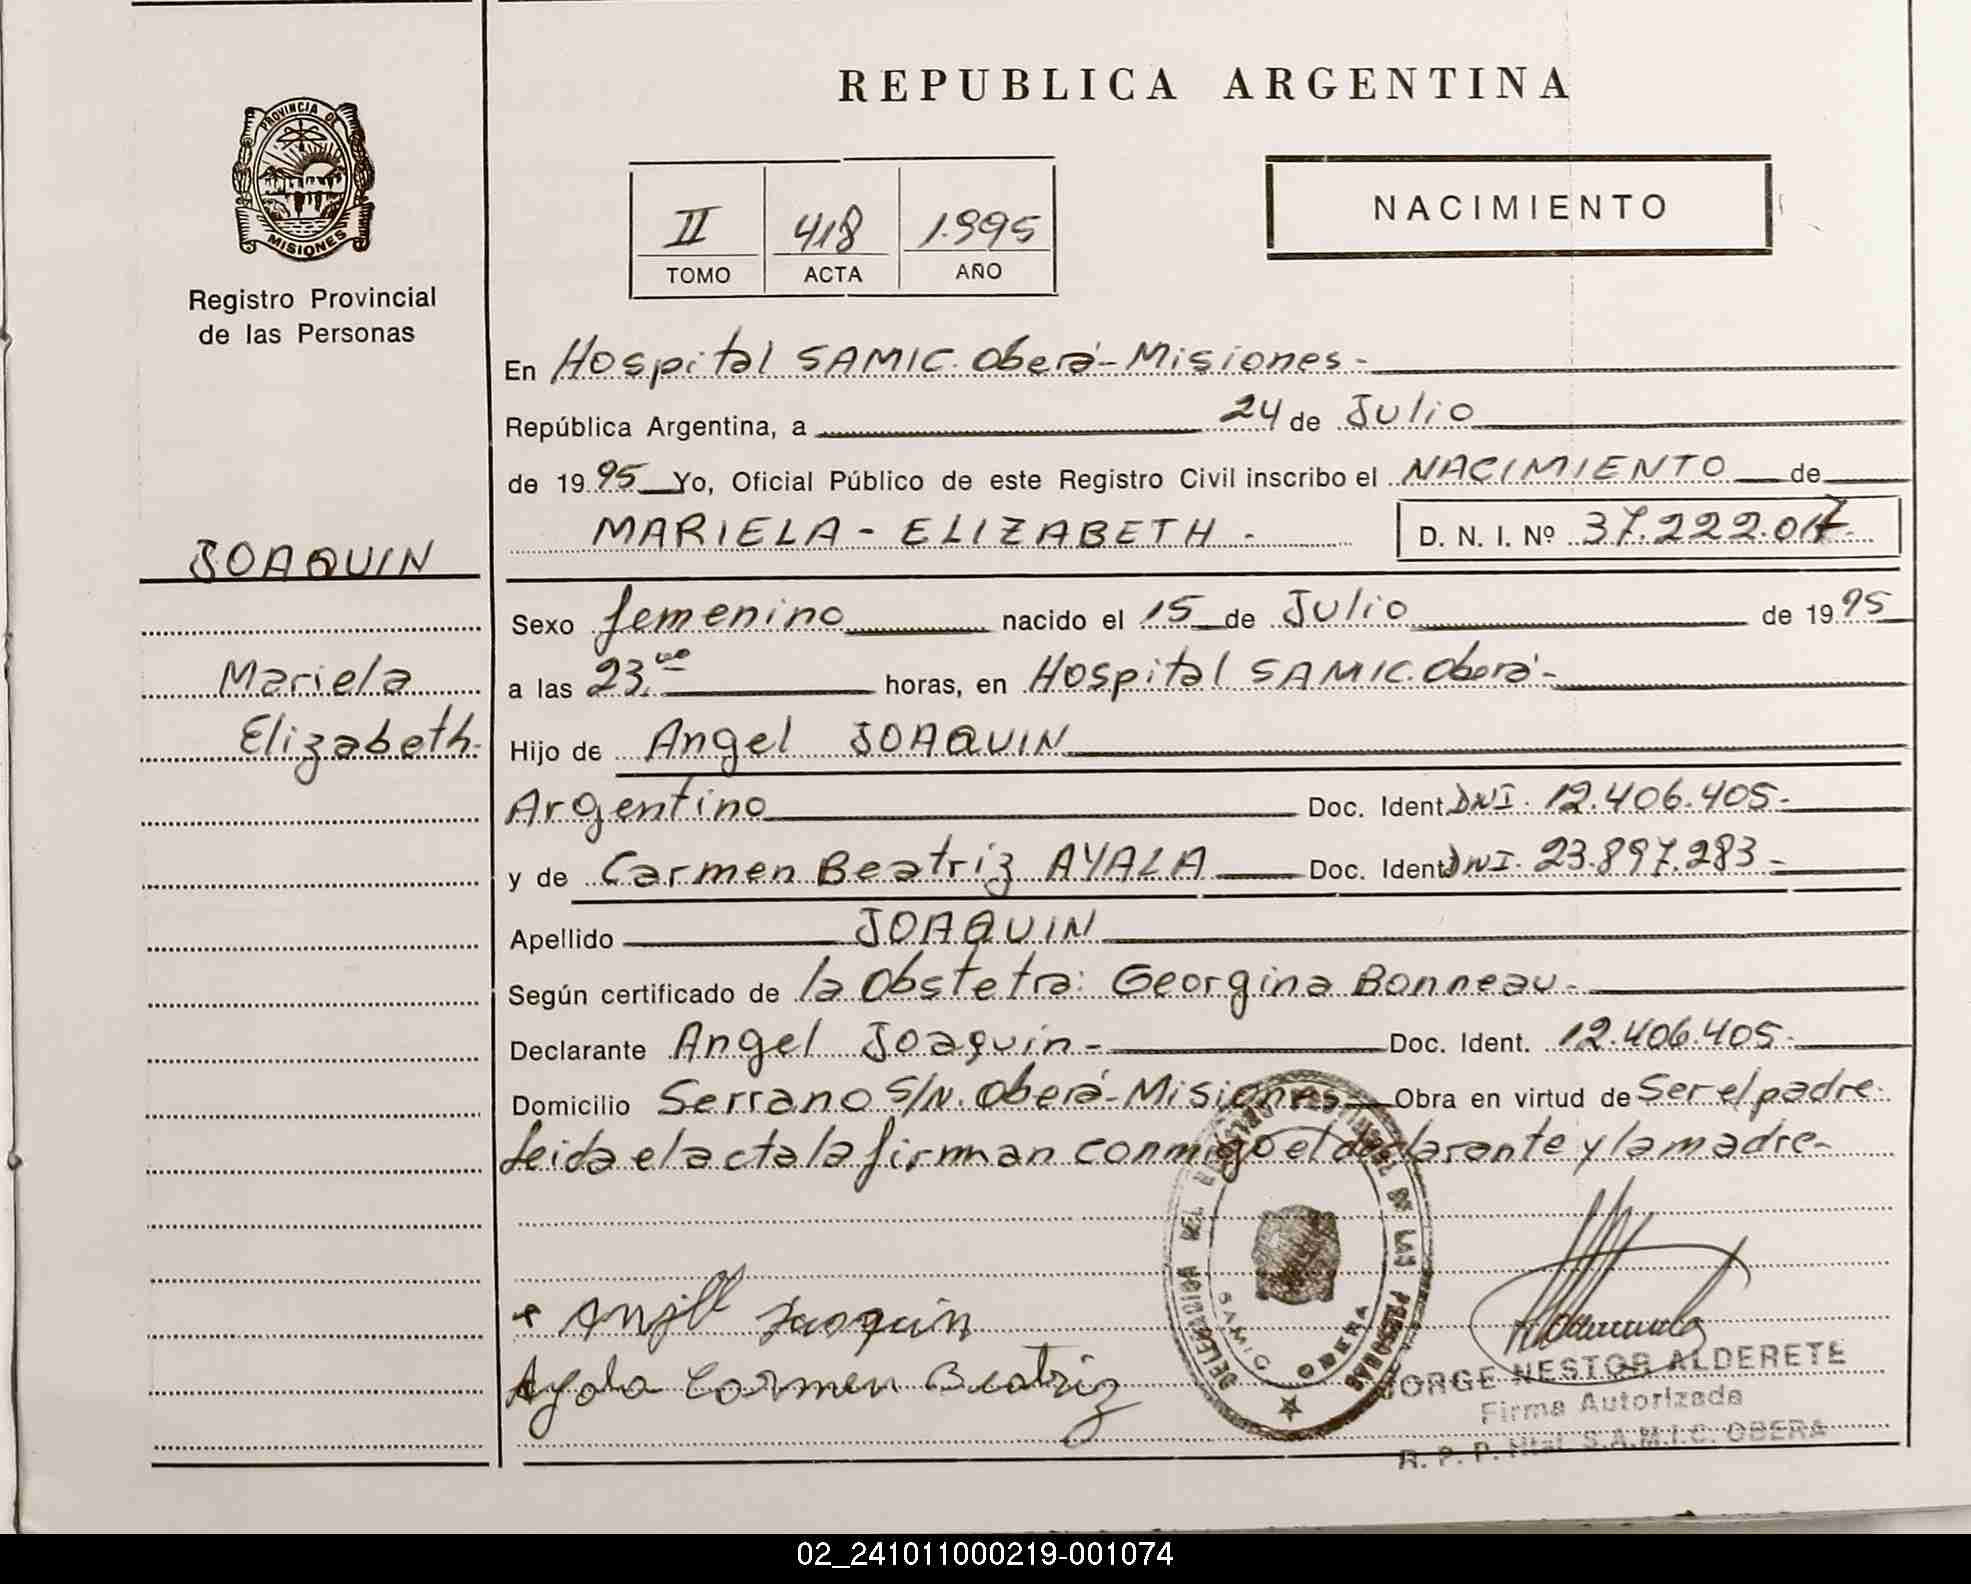 REPUBLICA ARGENTINA
PROVINCIA DE
MISIONES
Registro Provincial
de las Personas
II 418 1.995
TOMO ACTA AÑO
NACIMIENTO
En Hospital SAMIC. Oberá-Misiones-
República Argentina, a 24 de Julio
de 1995 Yo, Oficial Público de este Registro Civil inscribo el NACIMIENTO de
MARIELA - ELIZABETH - D. N. I. Nº 37.222.017-
JOAQUIN
Sexo femenino nacido el 15 de Julio de 1995
Mariela
a las 23.00 horas, en Hospital SAMIC. Oberá-
Elizabeth-
Hijo de Angel JOAQUIN
Argentino Doc. Ident. DNI. 12.406.405-
y de Carmen Beatriz AYALA Doc. Ident. DNI. 23.897.283-
Apellido JOAQUIN
Según certificado de la Obstetra: Georgina Bonneau-
Declarante Angel Joaquin- Doc. Ident. 12.406.405-
Domicilio Serrano S/N. Oberá-Misiones Obra en virtud de Ser el padre.
Leida el acta la firman conmigo el declarante y la madre-
DELEGACION DEL REGISTRO PROVINCIAL DE LAS PERSONAS
SAMIC OBERA
Joaquin
Ayala Carmen Beatriz
JORGE NESTOR ALDERETE
Firma Autorizada
R. P. P. Htal. S.A.M.I.C. OBERA
02_241011000219-001074